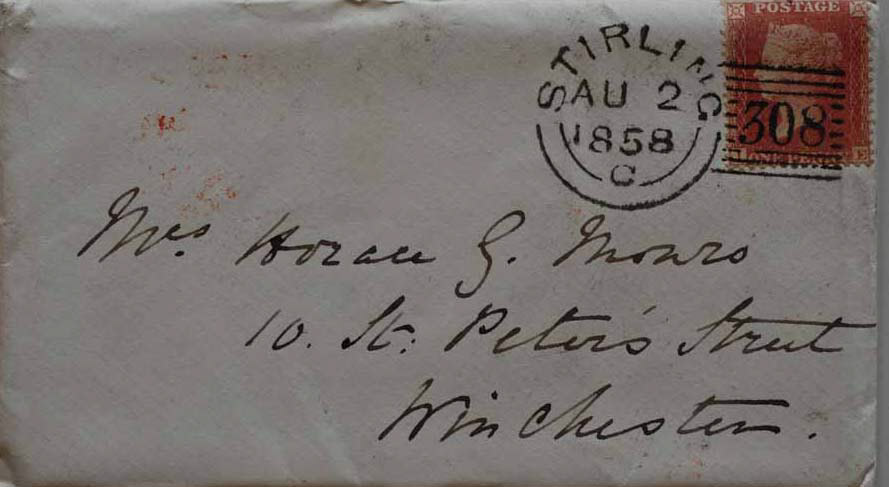 POSTAGE
STIRLING
AU 2
1858
C
308
ONE PENNY
Mrs. Horace G. Monro
10. St. Peter's Street
Winchester.